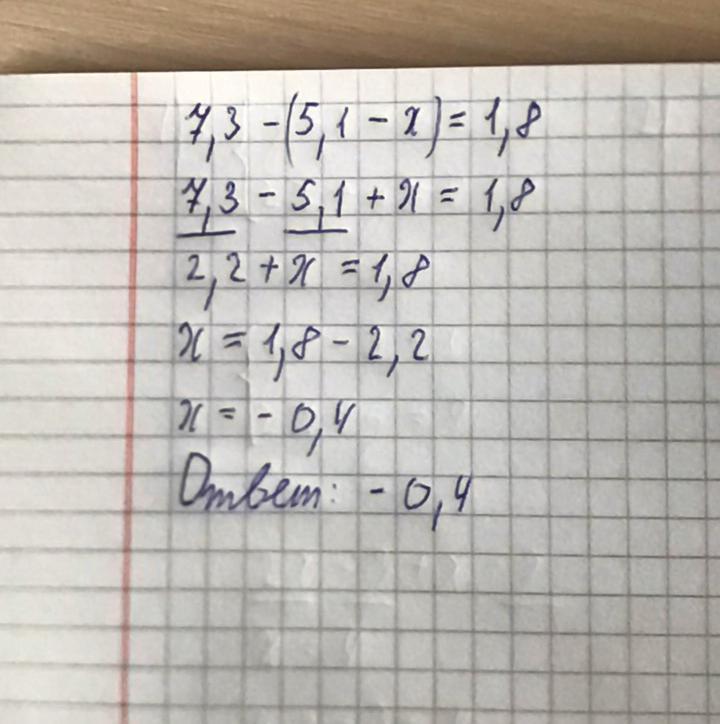 7,3 - (5,1 - x) = 1,8
7,3 - 5,1 + x = 1,8
2,2 + x = 1,8
x = 1,8 - 2,2
x = - 0,4
Ответ: - 0,4